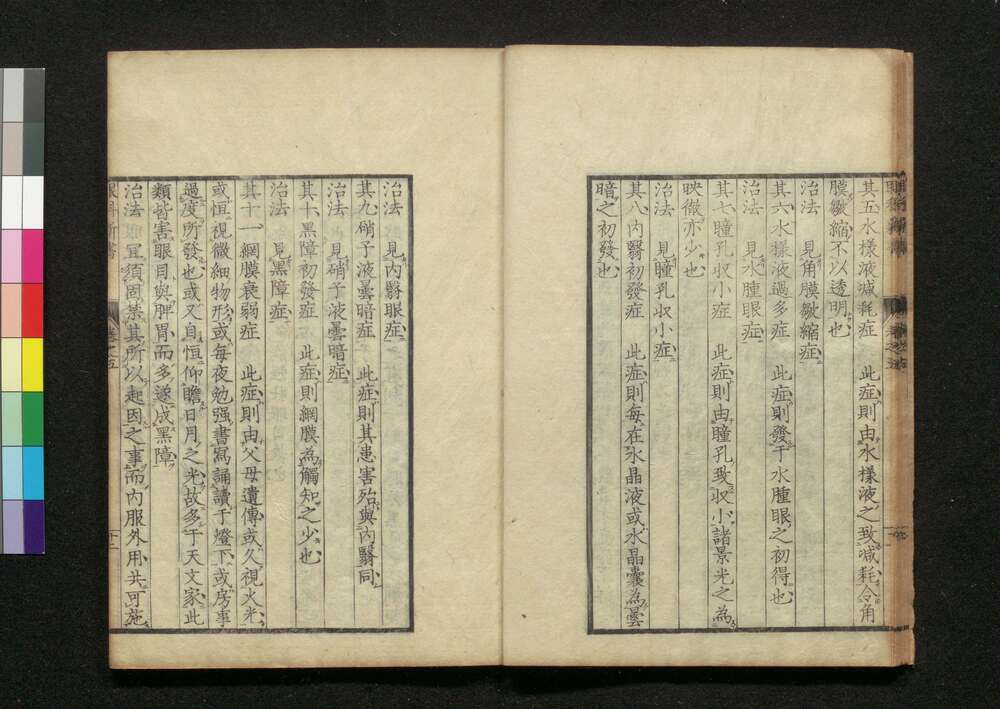 其五水樣液減耗症　此症則由水樣液之致減耗令角
膜皺縮不以透明也
治法　見角膜皺縮症
其六水樣液過多症　此症則發于水腫眼之初得也
治法　見水腫眼症
其七瞳孔収小症　此症則由瞳孔致収小諸景光之為
映徹亦少也
治法　見瞳孔収小症
其八內翳初發症　此症則每在水晶液或水晶囊為曇
暗之初發也
治法　見內翳眼症
其九硝子液曇暗症　此症則其患害殆與內翳同
治法　見硝子液曇暗症
其十黑障初發症　此症則網膜為觸知之少也
治法　見黑障症
其十一網膜衰弱症　此症則由父母遺傳或久視火光
或恒視微細物形或每夜勉强書寫誦讀于燈下或房事
過度所發也或又自恒仰瞻日月之光故多于天文家此
類皆害眼目與脾胃而多遂成黑障
治法　宜須固禁其所以起因之事而內服外用共可施